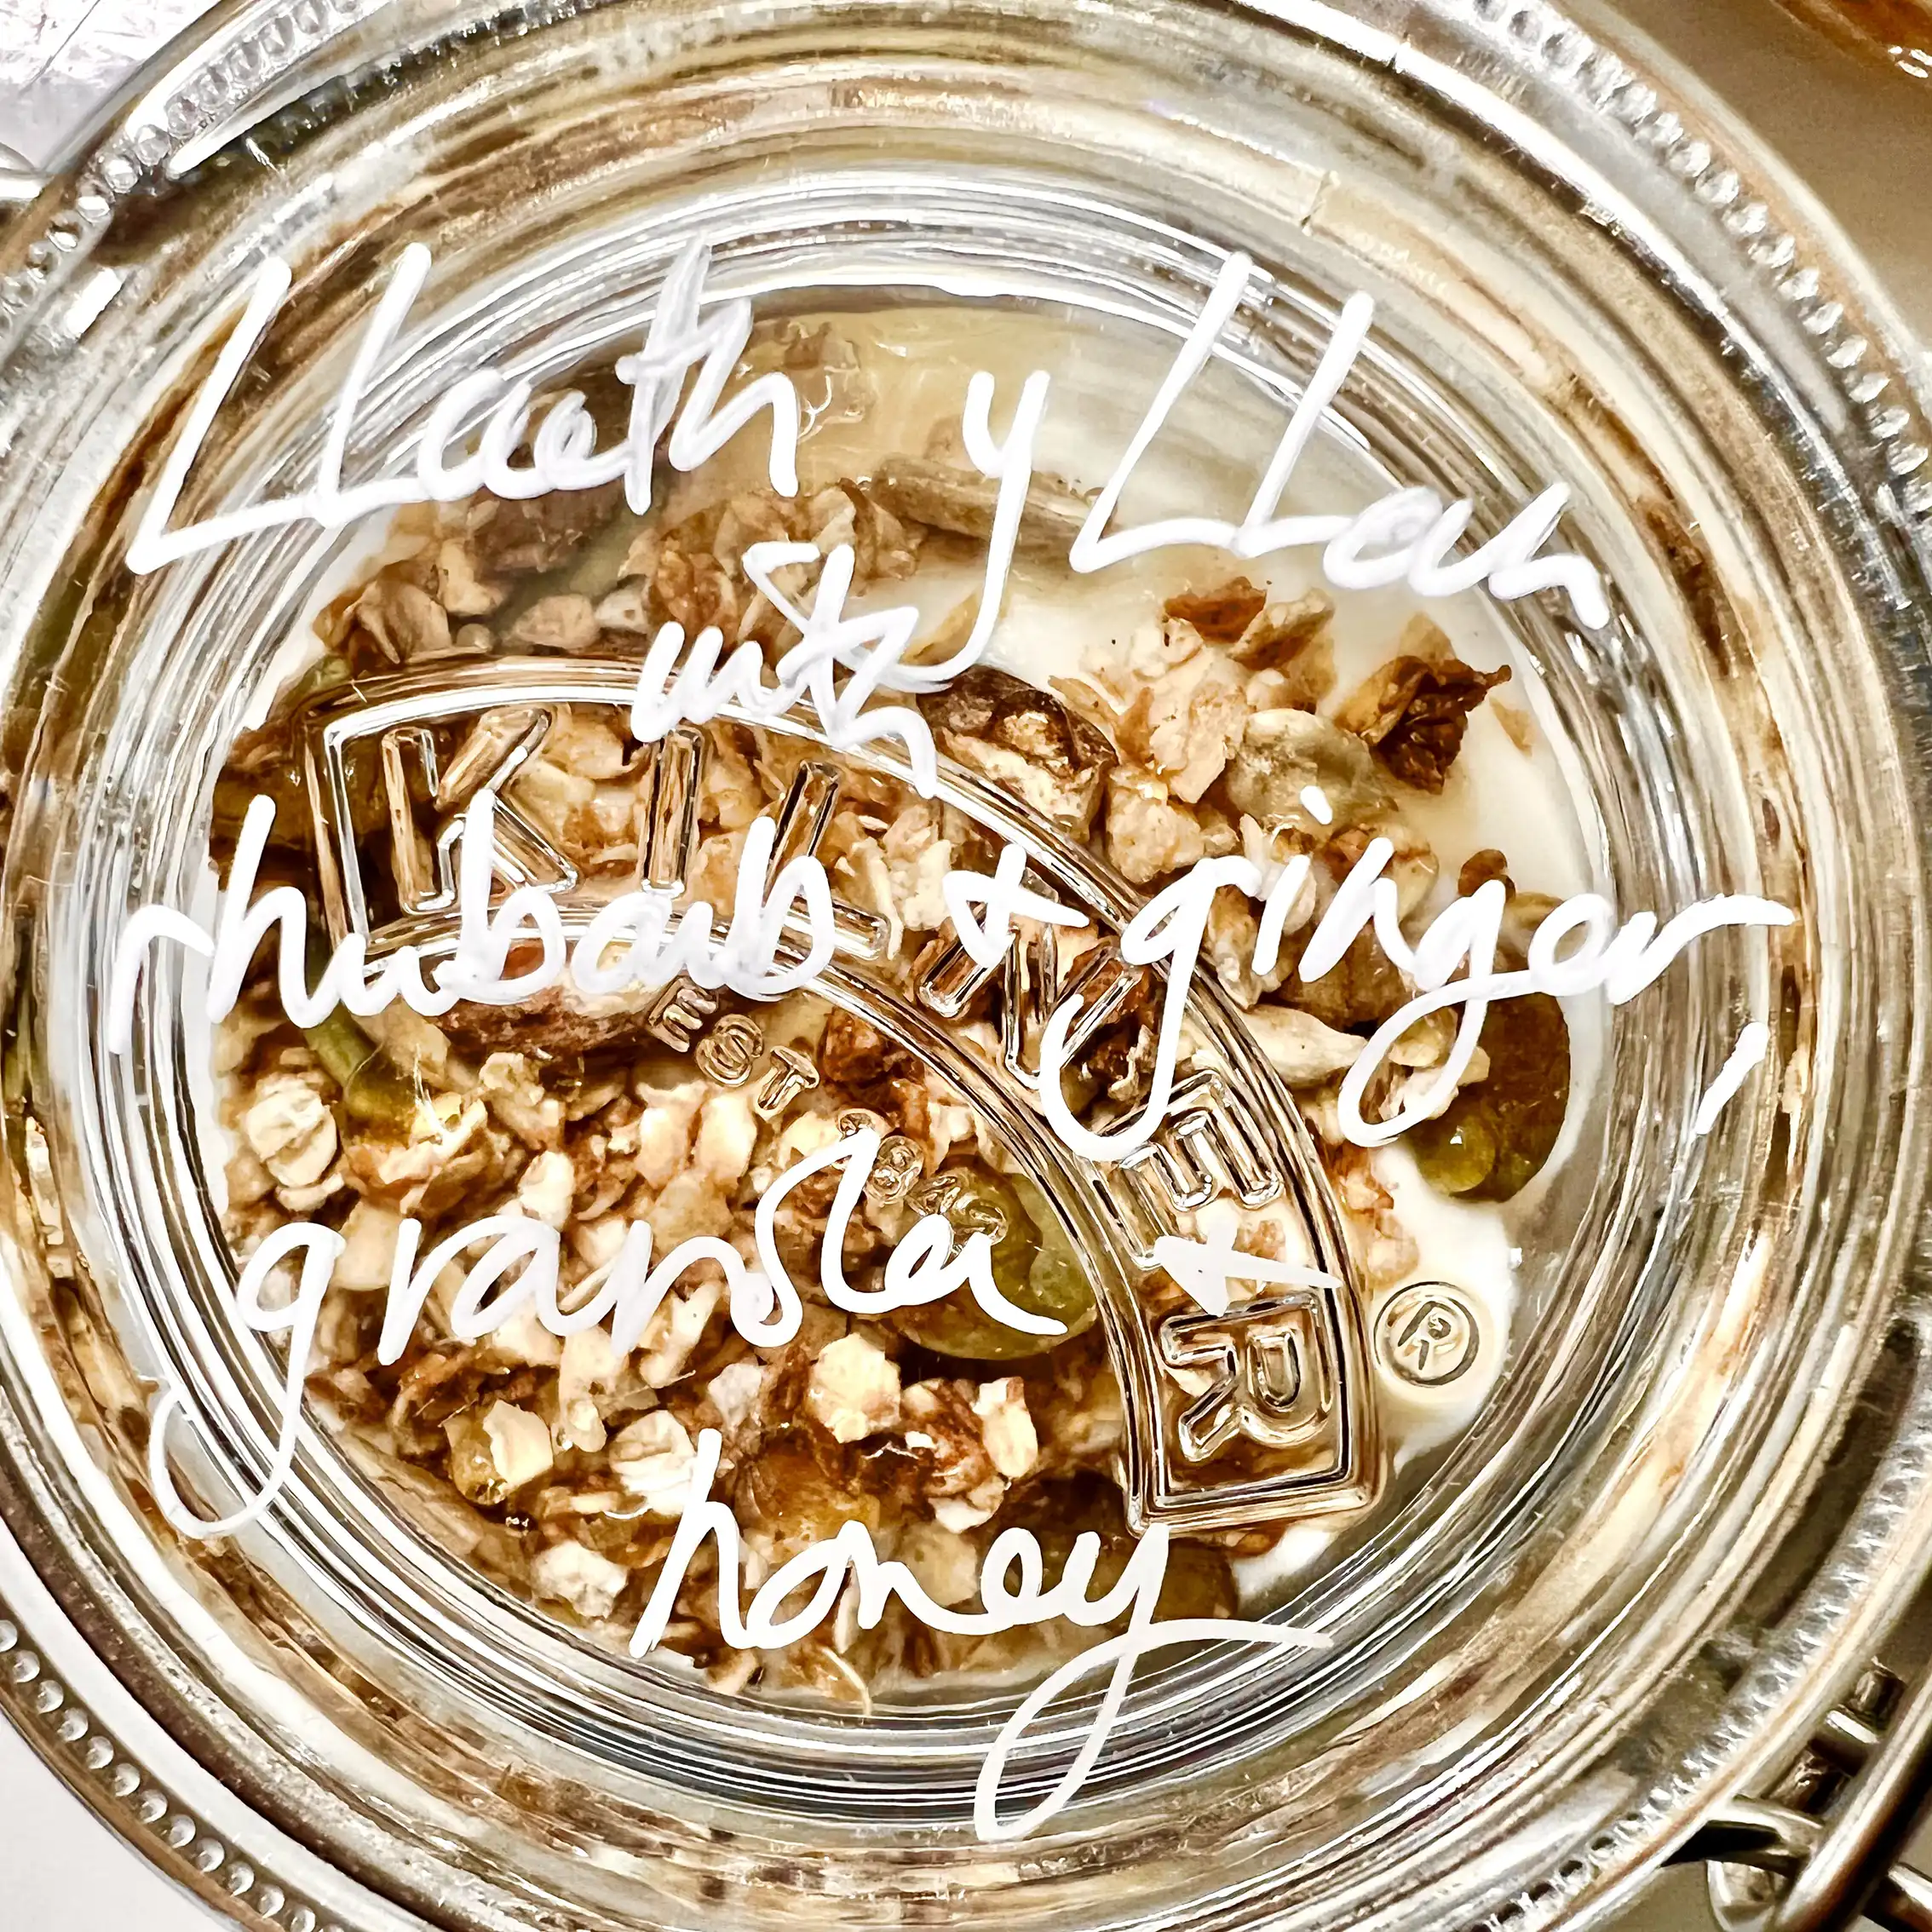 Llaeth y Llan
with
rhubarb + ginger,
granola +
honey
KILNER
EST 1842
®